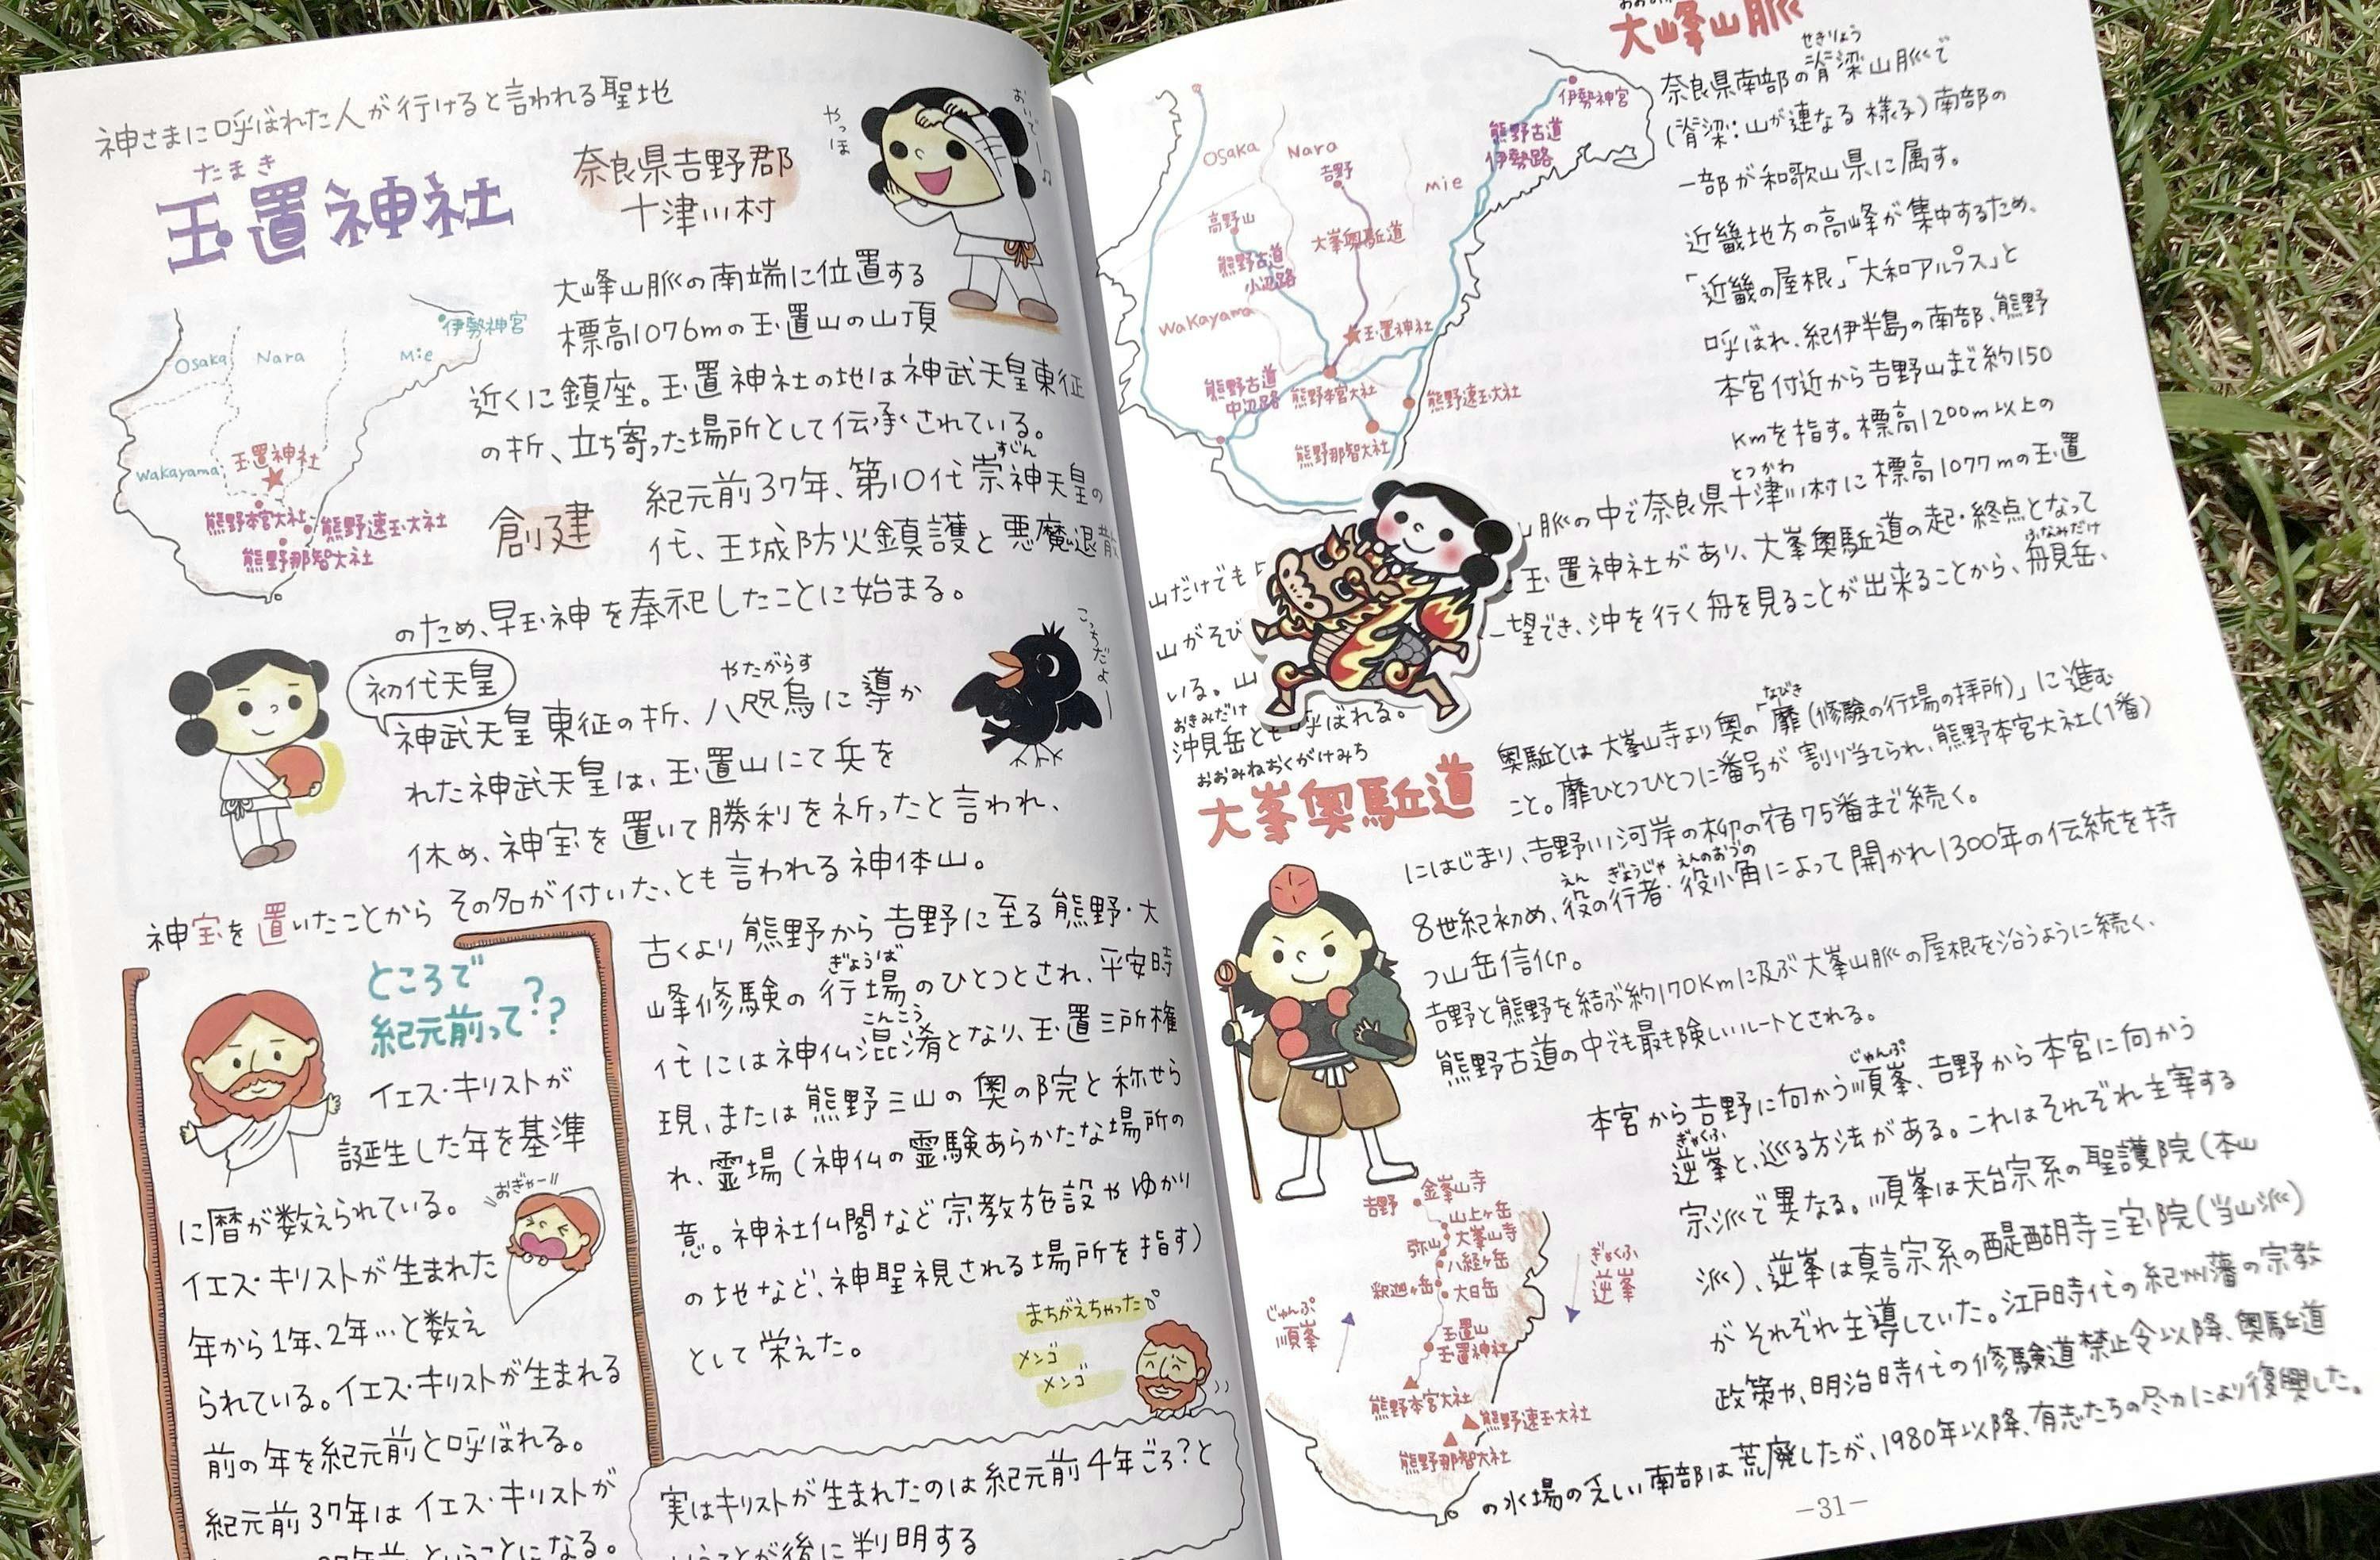 神さまに呼ばれた人が行けると言われる聖地
たまき
玉置神社
奈良県吉野郡
十津川村
やっほ
おいでー♪
大峰山脈の南端に位置する
標高1076mの玉置山の山頂
近くに鎮座。玉置神社の地は神武天皇東征
の折、立ち寄った場所として伝承されている。
伊勢神宮
Osaka
Nara
Mie
Wakayama
玉置神社
熊野本宮大社
熊野速玉大社
熊野那智大社
創建
すじん
紀元前37年、第10代崇神天皇の
代、王城防火鎮護と悪魔退散
のため、早玉神を奉祀したことに始まる。
初代天皇
やたがらす
神武天皇東征の折、八咫烏に導か
れた神武天皇は、玉置山にて兵を
休め、神宝を置いて勝利を祈ったと言われ、
神宝を置いたことからその名が付いた、とも言われる神体山。
こっちだよー
ところで
紀元前って??
イエス・キリストが
誕生した年を基準
に暦が数えられている。
おぎゃー
イエス・キリストが生まれた
年から1年、2年…と数え
られている。イエス・キリストが生まれる
前の年を紀元前と呼ばれる。
紀元前37年はイエス・キリストが
ということになる。
古くより熊野から吉野に至る熊野・大
ぎょうば
峰修験の行場のひとつとされ、平安時
こんこう
代には神仏混淆となり、玉置三所権
現、または熊野三山の奥の院と称せら
れ、霊場(神仏の霊験あらかたな場所の
意。神社仏閣など宗教施設やゆかり
の地など、神聖視される場所を指す)
として栄えた。
まちがえちゃった
メンゴ
メンゴ
実はキリストが生まれたのは紀元前4年ごろ?と
いうことが後に判明する
大峰山脈
せきりょう
奈良県南部の脊梁山脈で
(脊梁:山が連なる様子)南部の
一部が和歌山県に属す。
近畿地方の高峰が集中するため、
「近畿の屋根」「大和アルプス」と
呼ばれ、紀伊半島の南部、熊野
本宮付近から吉野山まで約150
kmを指す。標高1200m以上の
伊勢神宮
熊野古道
伊勢路
Osaka
Nara
吉野
Mie
高野山
大峯奥駈道
熊野古道
小辺路
Wakayama
玉置神社
熊野古道
中辺路
熊野本宮大社
熊野速玉大社
熊野那智大社
山だけでも
とつかわ
山脈の中で奈良県十津川村に標高1077mの玉置
山がそび
玉置神社があり、大峯奥駈道の起・終点となって
ふなみだけ
いる。山
一望でき、沖を行く舟を見ることが出来ることから、舟見岳、
おきみだけ
沖見岳とも呼ばれる。
おおみねおくがけみち
大峯奥駈道
なびき
奥駈とは大峯山寺より奥の「靡(修験の行場の拝所)」に進む
こと。靡ひとつひとつに番号が割り当てられ、熊野本宮大社(1番)
にはじまり、吉野川河岸の柳の宿75番まで続く。
えん ぎょうじゃ えんのおづの
8世紀初め、役の行者・役小角によって開かれ1300年の伝統を持
つ山岳信仰。
吉野と熊野を結ぶ約170kmに及ぶ大峯山脈の屋根を沿うように続く、
熊野古道の中でも最も険しいルートとされる。
じゅんぷ
本宮から吉野に向かう順峯、吉野から本宮に向かう
ぎゃくふ
逆峯と、巡る方法がある。これはそれぞれ主宰する
宗派で異なる。順峯は天台宗系の聖護院(本山
派)、逆峯は真言宗系の醍醐寺三宝院(当山派)
がそれぞれ主導していた。江戸時代の紀州藩の宗教
政策や、明治時代の修験道禁止令以降、奥駈道
の水場の乏しい南部は荒廃したが、1980年以降、有志たちの尽力により復興した。
吉野
金峯山寺
山上ヶ岳
大峯山寺
弥山
八経ヶ岳
釈迦ヶ岳
大日岳
じゅんぷ
順峯
ぎゃくふ
逆峯
玉置山
玉置神社
熊野本宮大社
熊野速玉大社
熊野那智大社
－31－